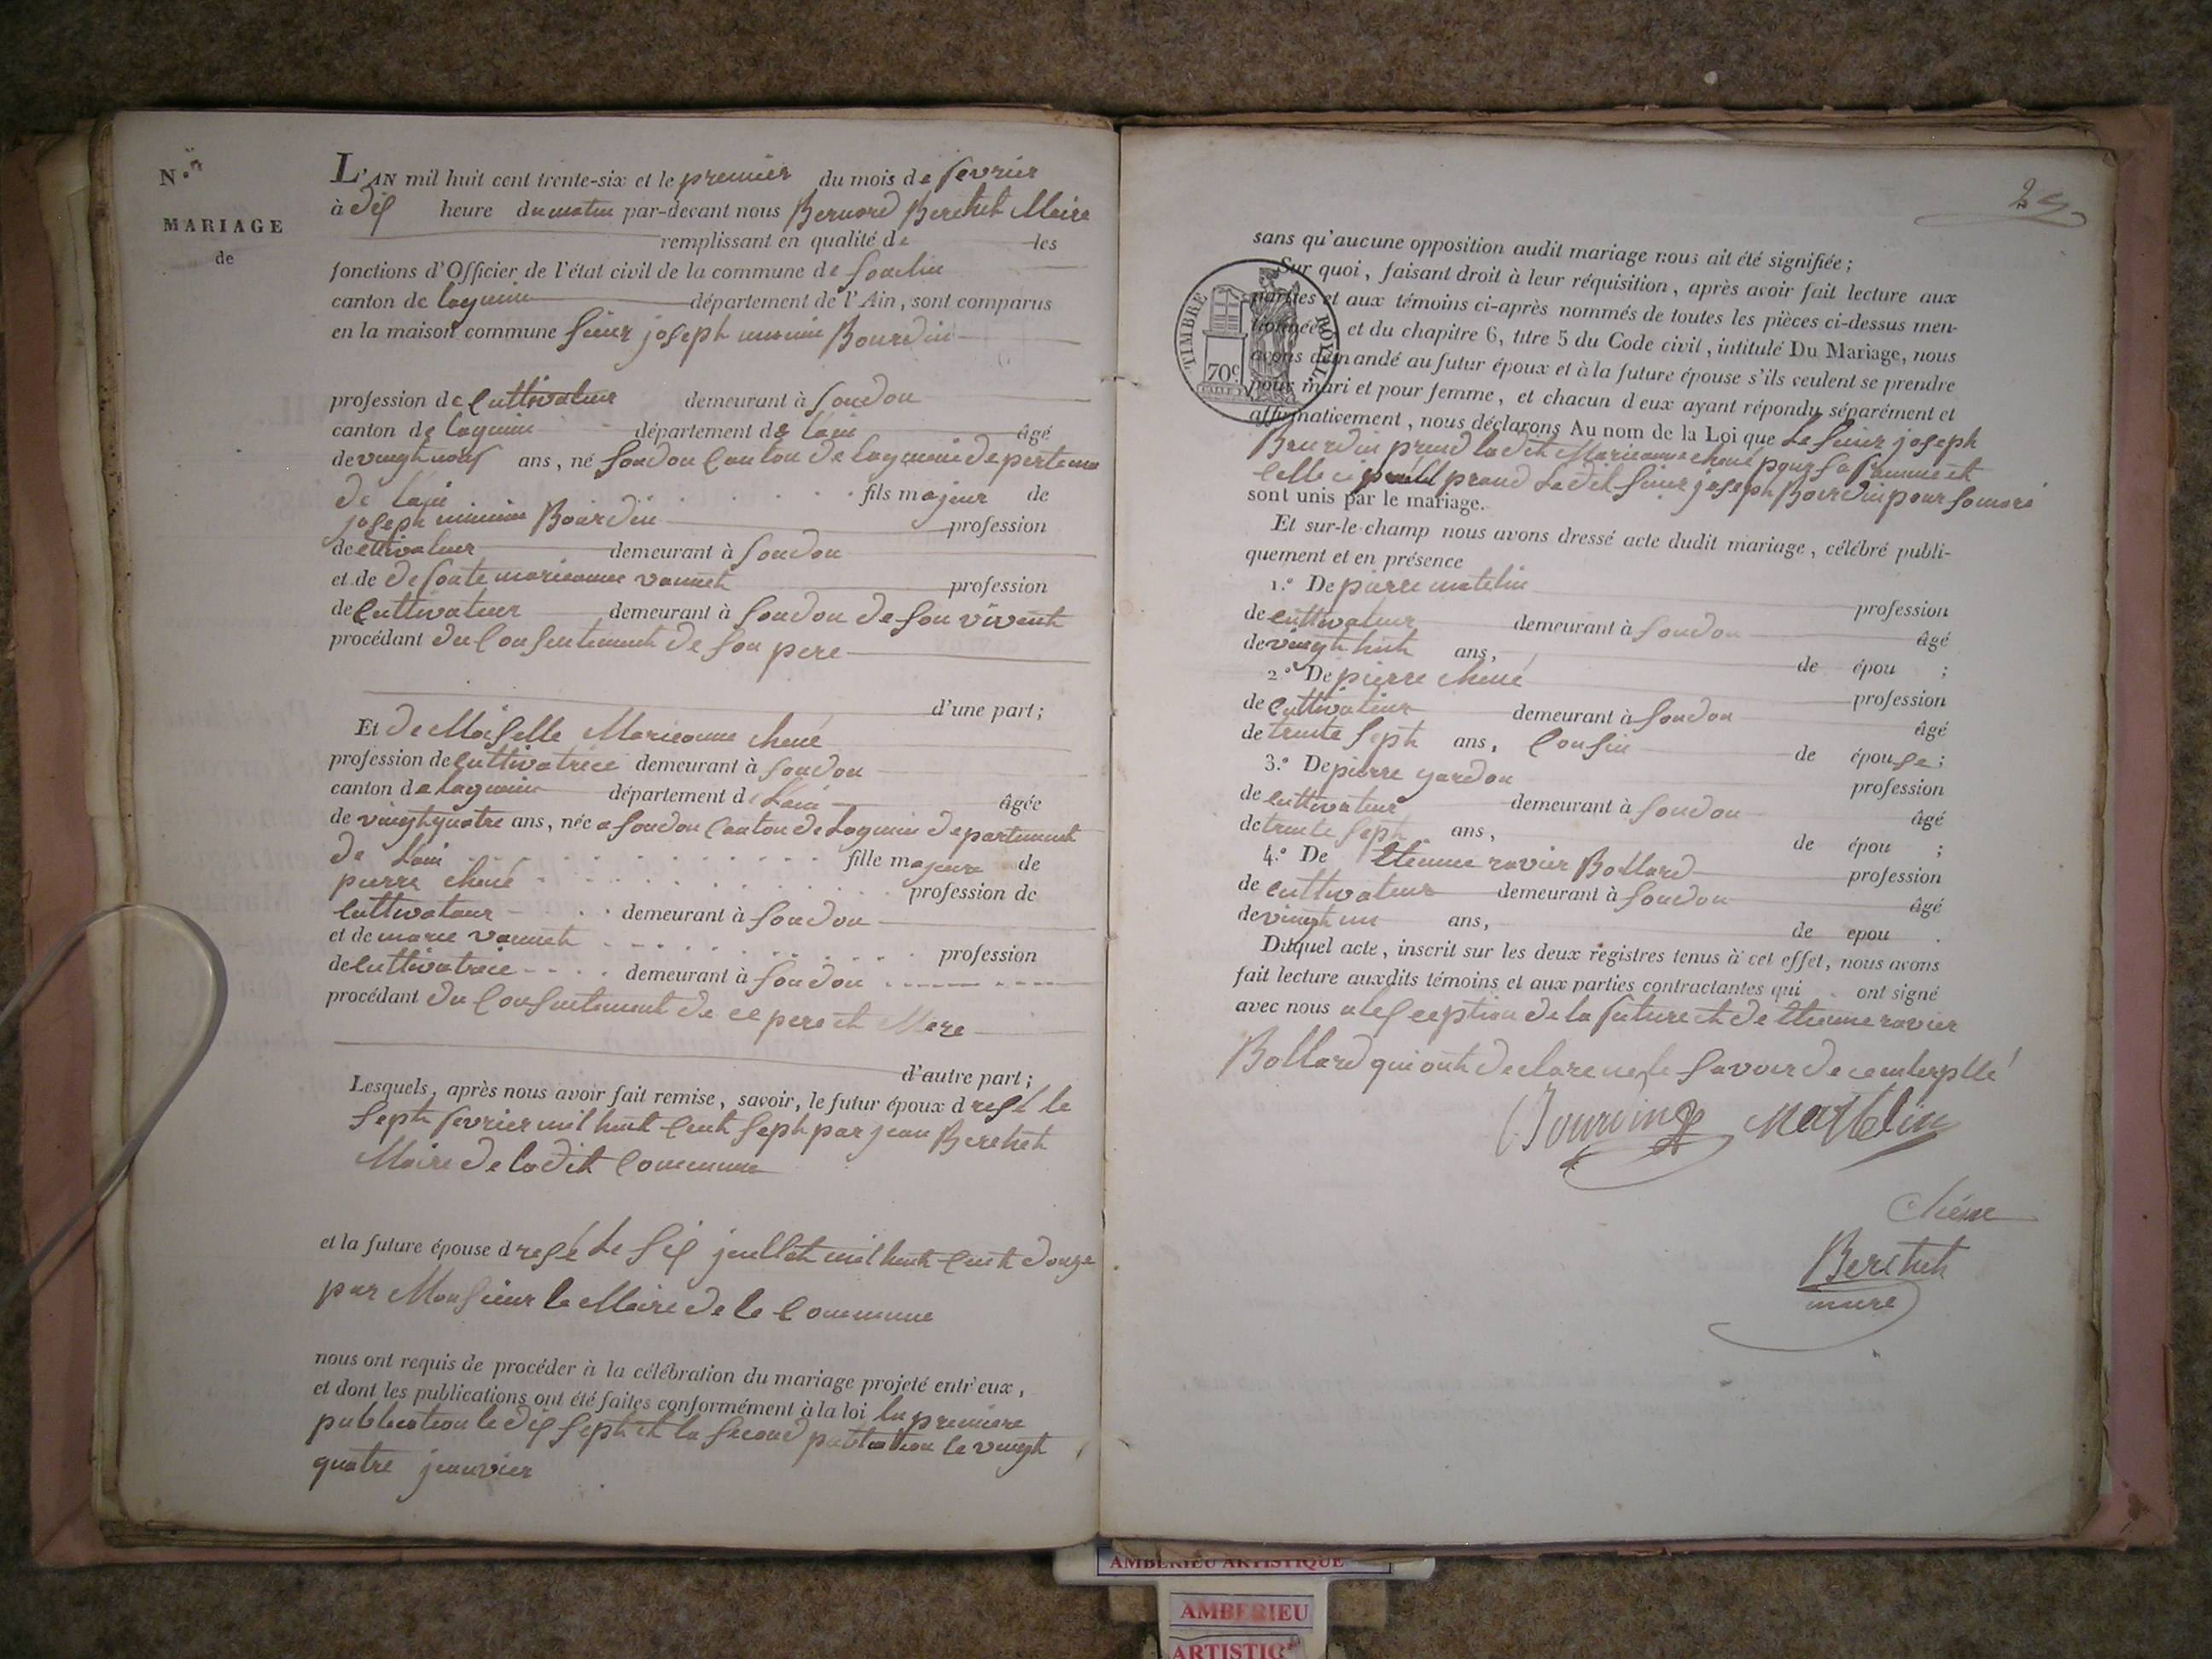 N.°
MARIAGE
de
L'AN mil huit cent trente-six et le premier du mois de fevrier
à dix heure du matin par-devant nous Bernard Berthet Maire
remplissant en qualité de les
fonctions d'Officier de l'état civil de la commune de Souclin
canton de lagnieu département de l'Ain, sont comparus
en la maison commune sieur joseph Bourdin
profession de Cultivateur demeurant à Soudon
canton de lagnieu département de lain âgé
de vingt neuf ans, né Soudon Canton de lagnieu departema
de lain fils majeur de
joseph Bourdin profession
de demeurant à Soudon
et de defonte marieanne vannet profession
de Cultivateur demeurant à Soudon de son vivent
procédant du Consentement de son pere
d'une part;
Et de Moiselle Marieanne chené
profession de cultivatrice demeurant à Soudon
canton de lagnieu département de Lain âgée
de vingt quatre ans, née a Soudon Canton de Lagnieu departement
de Lain fille majeure de
pierre chené profession de
Cultivateur demeurant à Soudon
et de marie vannet profession
de cultivatrice demeurant à Soudon
procédant du Consentement de ce pere et Mere
d'autre part;
Lesquels, après nous avoir fait remise, savoir, le futur époux dresé le
Sept fevrier mil huit Cent Sept par jean Berthet
Maire de la dit Commune
et la future épouse dresé Le Six juillet mil huit Cent douze
par Monsieur le Maire de la Commune
nous ont requis de procéder à la célébration du mariage projeté entr'eux,
et dont les publications ont été faites conformément à la loi la premiere
publication le dix sept et la second publication le vingt
quatre janvier
25
sans qu'aucune opposition audit mariage nous ait été signifiée;
Sur quoi, faisant droit à leur réquisition, après avoir fait lecture aux
parties et aux témoins ci-après nommés de toutes les pièces ci-dessus men-
tionnées, et du chapitre 6, titre 5 du Code civil, intitulé Du Mariage, nous
avons demandé au futur époux et à la future épouse s'ils veulent se prendre
pour mari et pour femme, et chacun d'eux ayant répondu séparément et
affirmativement, nous déclarons Au nom de la Loi que Le sieur joseph
Bourdin prend la dit Marieanne chené pour sa famme et
Celle ci prand Le dit sieur joseph Bourdin pour so mari
sont unis par le mariage.
TIMBRE ROYAL
70c
Et sur-le-champ nous avons dressé acte dudit mariage, célébré publi-
quement et en présence
1.° De pierre matelin profession
de cultivateur demeurant à Soudon âgé
de vingt huit ans, de épou ;
2.° De pierre chené profession
de Cultivateur demeurant à Soudon âgé
de trente sept ans, Cousin de épouse;
3.° De pierre gardon profession
de cultivateur demeurant à Soudon âgé
de trente sept ans, de épou ;
4.° De Etienne ravier Bollard profession
de cultivateur demeurant à Soudon âgé
de vingt un ans, de epou .
Duquel acte, inscrit sur les deux registres tenus à cet effet, nous avons
fait lecture auxdits témoins et aux parties contractantes qui ont signé
avec nous a lexception de la future et de Etienne ravier
Bollard qui ont declare ne le savoir de
Bourdin Mattelin
Chéne
Berthet
maire
AMBERIEU ARTISTIQUE
AMBERIEU
ARTISTIQ